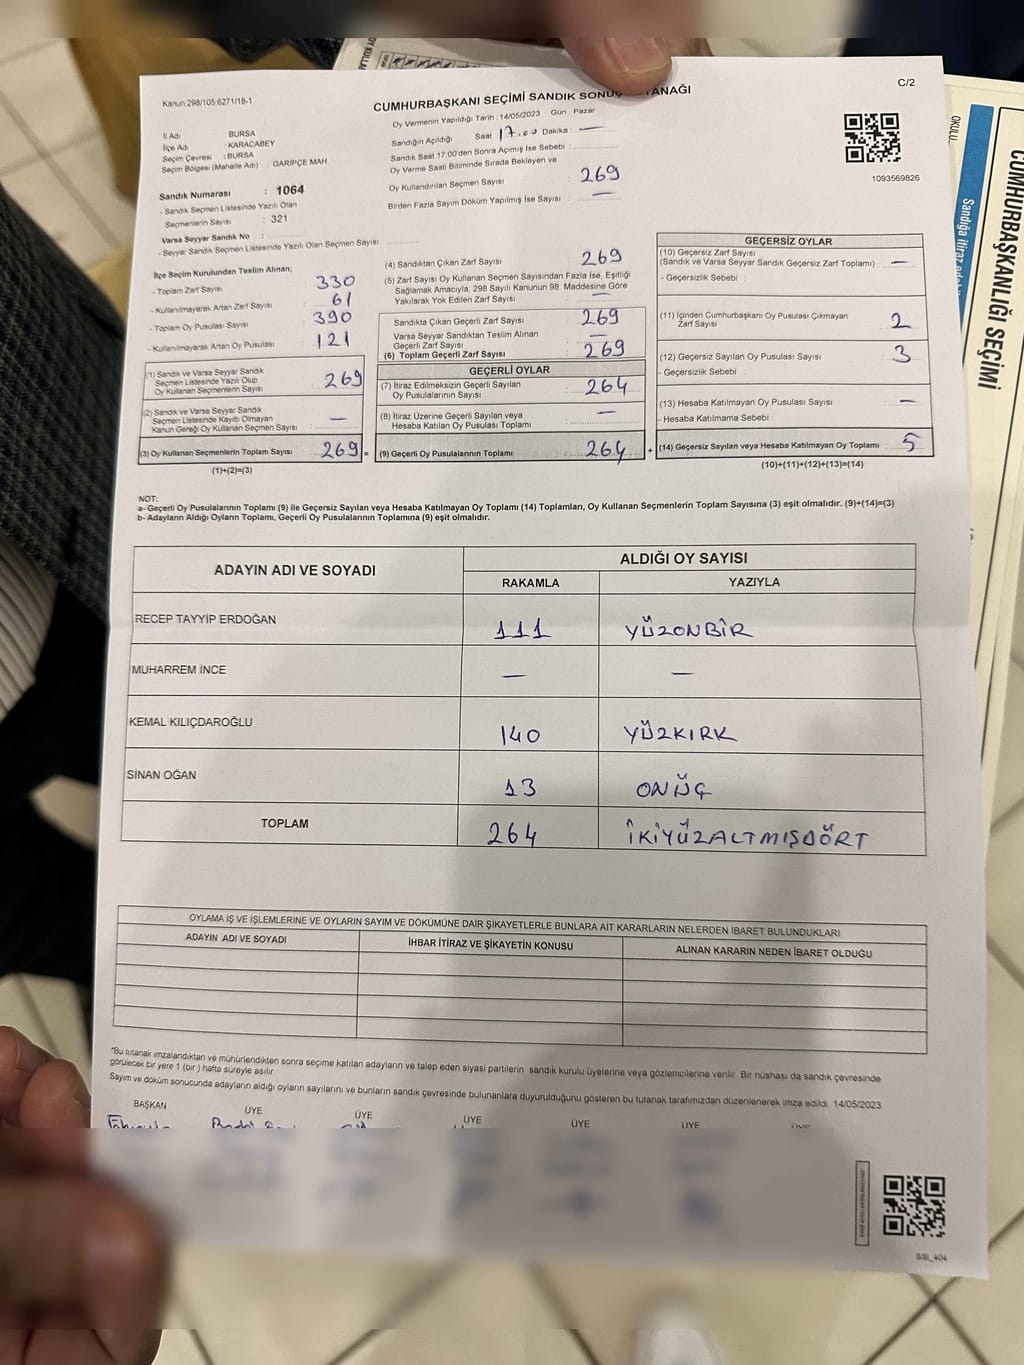 C/2
Kanun:298/105;6271/18-1
CUMHURBAŞKANI SEÇİMİ SANDIK SONUÇ TANAĞI
Oy Vermenin Yapıldığı Tarih : 14/05/2023 Gün : Pazar
İl Adı : BURSA
İlçe Adı : KARACABEY
Seçim Çevresi : BURSA
Seçim Bölgesi (Mahalle Adı) : GARİPÇE MAH
Sandığın Açıldığı Saat 17.00 Dakika : —
Sandık Saat 17:00'den Sonra Açımış İse Sebebi :
Oy Verme Saati Bitiminde Sırada Bekleyen ve
Oy Kullandırılan Seçmen Sayısı : 269
Birden Fazla Sayım Döküm Yapılmış İse Sayısı : —
1093569826
Sandık Numarası : 1064
- Sandık Seçmen Listesinde Yazılı Olan
Seçmenlerin Sayısı : 321
Varsa Seyyar Sandık No :
- Seyyar Sandık Seçmen Listesinde Yazılı Olan Seçmen Sayısı:
İlçe Seçim Kurulundan Teslim Alınan;
- Toplam Zarf Sayısı 330
- Kullanılmayarak Artan Zarf Sayısı 61
- Toplam Oy Pusulası Sayısı 390
- Kullanılmayarak Artan Oy Pusulası 121
(1) Sandık ve Varsa Seyyar Sandık
Seçmen Listesinde Yazılı Olup
Oy Kullanan Seçmenlerin Sayısı 269
(2) Sandık ve Varsa Seyyar Sandık
Seçmen Listesinde Kayıtlı Olmayan
Kanun Gereği Oy Kullanan Seçmen Sayısı : —
(3) Oy Kullanan Seçmenlerin Toplam Sayısı 269 =
(1)+(2)=(3)
(4) Sandıktan Çıkan Zarf Sayısı 269
(5) Zarf Sayısı Oy Kullanan Seçmen Sayısından Fazla İse, Eşitliği
Sağlamak Amacıyla, 298 Sayılı Kanunun 98. Maddesine Göre
Yakılarak Yok Edilen Zarf Sayısı —
Sandıkta Çıkan Geçerli Zarf Sayısı 269
Varsa Seyyar Sandıktan Teslim Alınan
Geçerli Zarf Sayısı
(6) Toplam Geçerli Zarf Sayısı 269
GEÇERLİ OYLAR
(7) İtiraz Edilmeksizin Geçerli Sayılan
Oy Pusulalarının Sayısı 264
(8) İtiraz Üzerine Geçerli Sayılan veya
Hesaba Katılan Oy Pusulası Toplamı —
(9) Geçerli Oy Pusulalarının Toplamı 264 +
GEÇERSİZ OYLAR
(10) Geçersiz Zarf Sayısı
(Sandık ve Varsa Seyyar Sandık Geçersiz Zarf Toplamı) : —
- Geçersizlik Sebebi :
(11) İçinden Cumhurbaşkanı Oy Pusulası Çıkmayan
Zarf Sayısı : 2
(12) Geçersiz Sayılan Oy Pusulası Sayısı : 3
- Geçersizlik Sebebi :
(13) Hesaba Katılmayan Oy Pusulası Sayısı : —
- Hesaba Katılmama Sebebi :
(14) Geçersiz Sayılan veya Hesaba Katılmayan Oy Toplamı 5
(10)+(11)+(12)+(13)=(14)
NOT:
a- Geçerli Oy Pusulalarının Toplamı (9) ile Geçersiz Sayılan veya Hesaba Katılmayan Oy Toplamı (14) Toplamları, Oy Kullanan Seçmenlerin Toplam Sayısına (3) eşit olmalıdır. (9)+(14)=(3)
b- Adayların Aldığı Oyların Toplamı, Geçerli Oy Pusulalarının Toplamına (9) eşit olmalıdır.
ADAYIN ADI VE SOYADI
ALDIĞI OY SAYISI
RAKAMLA YAZIYLA
RECEP TAYYİP ERDOĞAN 111 YÜZONBİR
MUHARREM İNCE — —
KEMAL KILIÇDAROĞLU 140 YÜZKIRK
SİNAN OĞAN 13 ONÜÇ
TOPLAM 264 İKİYÜZALTMIŞDÖRT
OYLAMA İŞ VE İŞLEMLERİNE VE OYLARIN SAYIM VE DÖKÜMÜNE DAİR ŞİKAYETLERLE BUNLARA AİT KARARLARIN NELERDEN İBARET BULUNDUKLARI
ADAYIN ADI VE SOYADI İHBAR İTİRAZ VE ŞİKAYETİN KONUSU ALINAN KARARIN NEDEN İBARET OLDUĞU
*Bu tutanak imzalandıktan ve mühürlendikten sonra seçime katılan adayların ve talep eden siyasi partilerin sandık kurulu üyelerine veya gözlemcilerine verilir. Bir nüshası da sandık çevresinde
görülecek bir yere 1 (bir ) hafta süreyle asılır.
Sayım ve döküm sonucunda adayların aldığı oyların sayılarını ve bunların sandık çevresinde bulunanlara duyurulduğunu gösteren bu tutanak tarafımızdan düzenlenerek imza edildi. 14/05/2023
BAŞKAN ÜYE ÜYE ÜYE ÜYE ÜYE ÜYE
SSI_404
OKULU
Sandığa itiraz
CUMHURBAŞKANLIĞI SEÇİMİ
OY KULLA